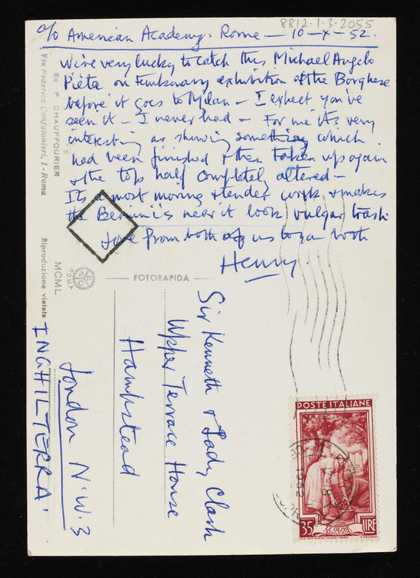 8812-1-3-2055
c/o American Academy. Rome — 10-X-52.
We're very lucky to catch this Michael Angelo
Pieta on temporary exhibition at the Borghese
before it goes to Milan — I expect you've
seen it — I never had — For me it's very
interesting as showing something which
had been finished & then taken up again
& the top half completely altered —
Its a most moving & tender work & makes
the Berninis near it look vulgar trash
Love from both of us to you both
Henry
FOTORAPIDA
Sir Kenneth & Lady Clark
Upper Terrace House
Hampstead
London N.W.3
INGHILTERRA
Ed. F. CHAUFFOURIER
Via - Roma
Riproduzione vietata
MCML
POSTE ITALIANE
35 LIRE
1952